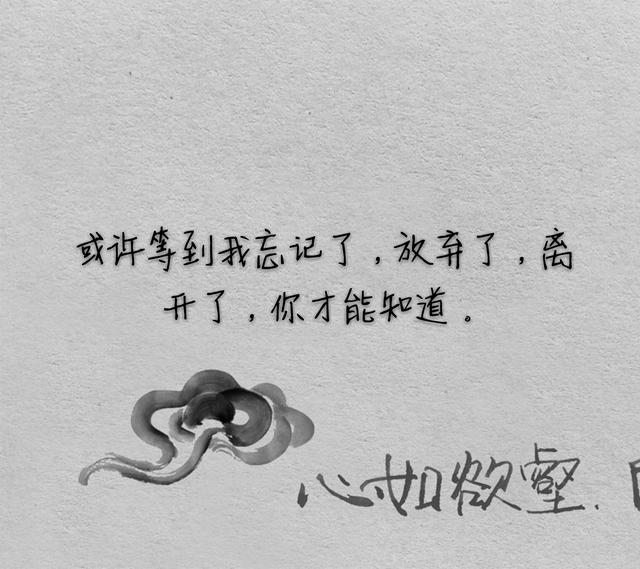 或许等到我忘记了，放弃了，离
开了，你才能知道。
心如欲壑.